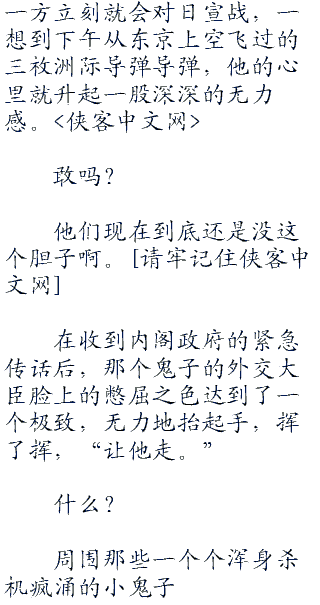 一方立刻就会对日宣战，一
想到下午从东京上空飞过的
三枚洲际导弹导弹，他的心
里就升起一股深深的无力
感。<侠客中文网>
敢吗？
他们现在到底还是没这
个胆子啊。[请牢记住侠客中
文网]
在收到内阁政府的紧急
传话后，那个鬼子的外交大
臣脸上的憋屈之色达到了一
个极致，无力地抬起手，挥
了挥，“让他走。”
什么？
周围那些一个个浑身杀
机疯涌的小鬼子